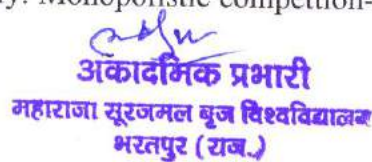 y. Monopolistic competition-
अकादमिक प्रभारी
महाराजा सूरजमल बृज विश्वविद्यालय
भरतपुर (राज.)